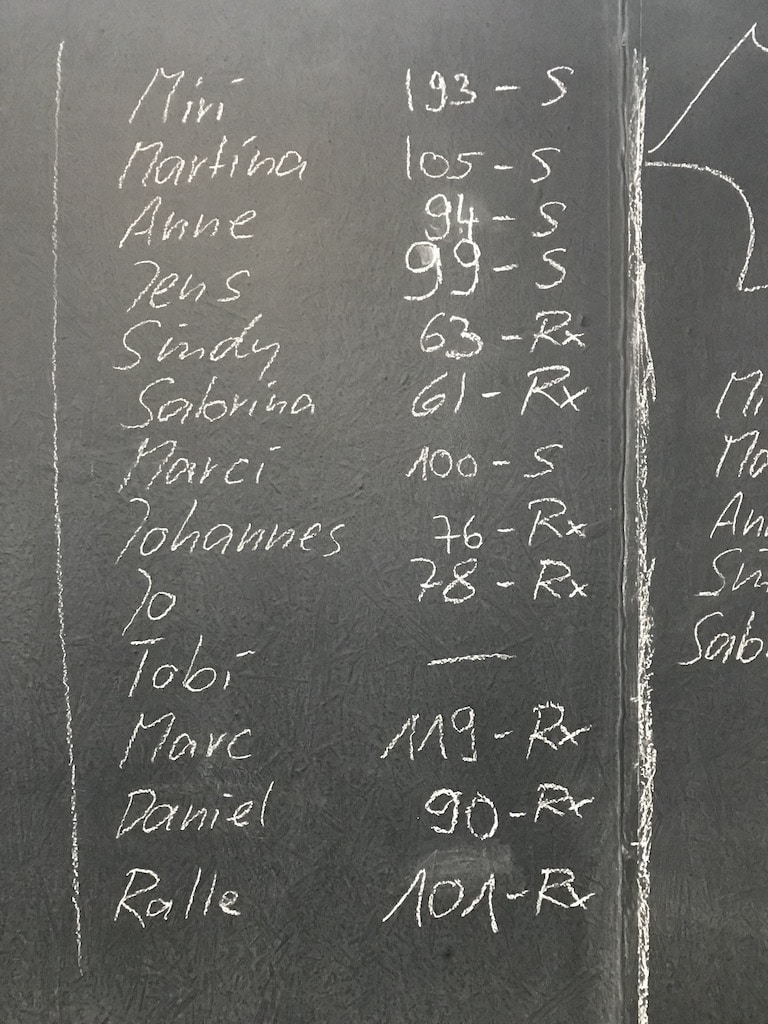 Miri 193 - S
Martina 105 - S
Anne 94 - S
Jens 99 - S
Sindy 63 - Rx
Sabrina 61 - Rx
Marci 100 - S
Johannes 76 - Rx
Jo 78 - Rx
Tobi —
Marc 119 - Rx
Daniel 90 - Rx
Ralle 101 - Rx
Mi
Ma
An
Sin
Sab